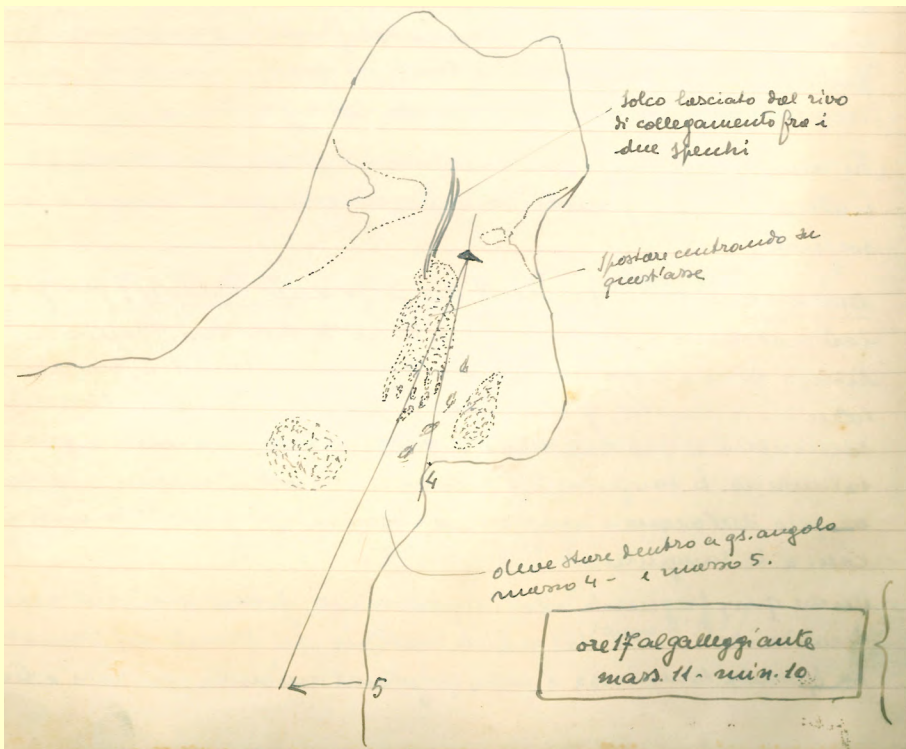 Solco lasciato dal rivo
di collegamento fra i
due specchi
Spostare centrando su
quest'asse
4
deve stare dentro a qs. angolo
masso 4 - e masso 5.
ore 17 al galleggiante
mass. 11 - min. 10
5